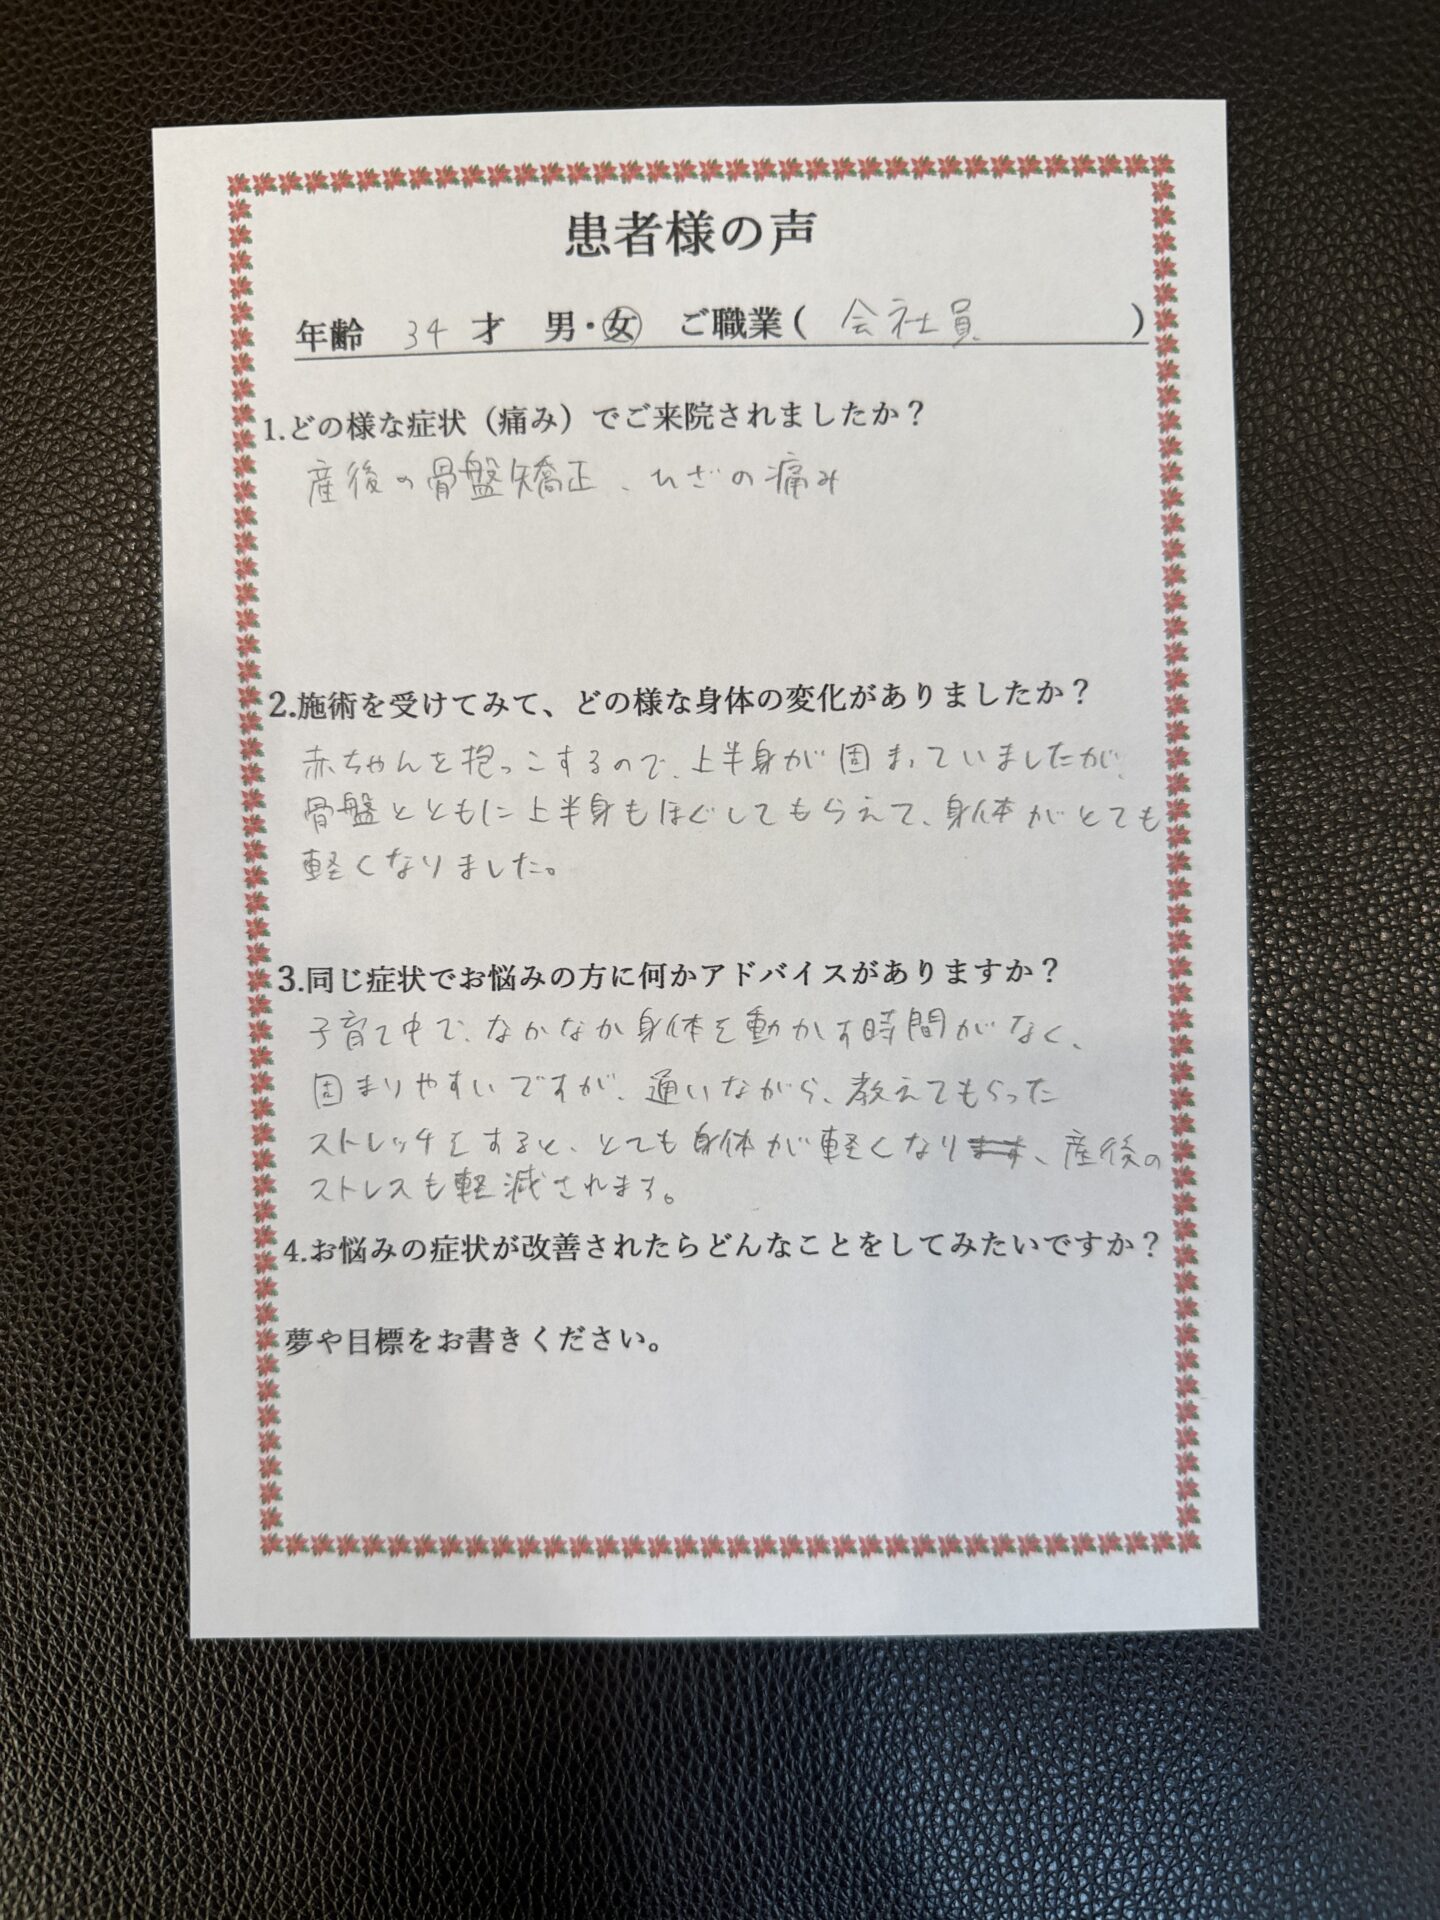 患者様の声
年齢 34 才 男・女 ご職業( 会社員 )
1.どの様な症状（痛み）でご来院されましたか？
産後の骨盤矯正、ひざの痛み
2.施術を受けてみて、どの様な身体の変化がありましたか？
赤ちゃんを抱っこするので、上半身が固まっていましたが、
骨盤とともに上半身もほぐしてもらえて、身体がとても
軽くなりました。
3.同じ症状でお悩みの方に何かアドバイスがありますか？
子育て中で、なかなか身体を動かす時間がなく、
固まりやすいですが、通いながら、教えてもらった
ストレッチをすると、とても身体が軽くなります、産後の
ストレスも軽減されます。
4.お悩みの症状が改善されたらどんなことをしてみたいですか？
夢や目標をお書きください。